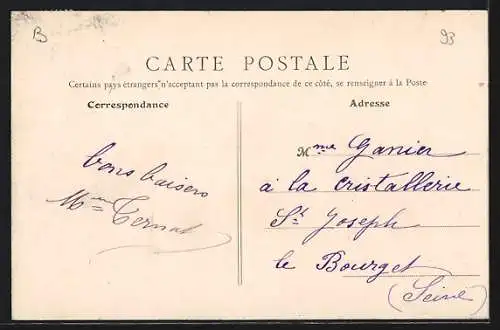 B
93
CARTE POSTALE
Certains pays étrangers n'acceptant pas la correspondance de ce côté, se renseigner à la Poste
Correspondance
bons baisers
Mme Ternat
Adresse
Mme Ganier
à la cristallerie
St Joseph
le Bourget
(Seine)